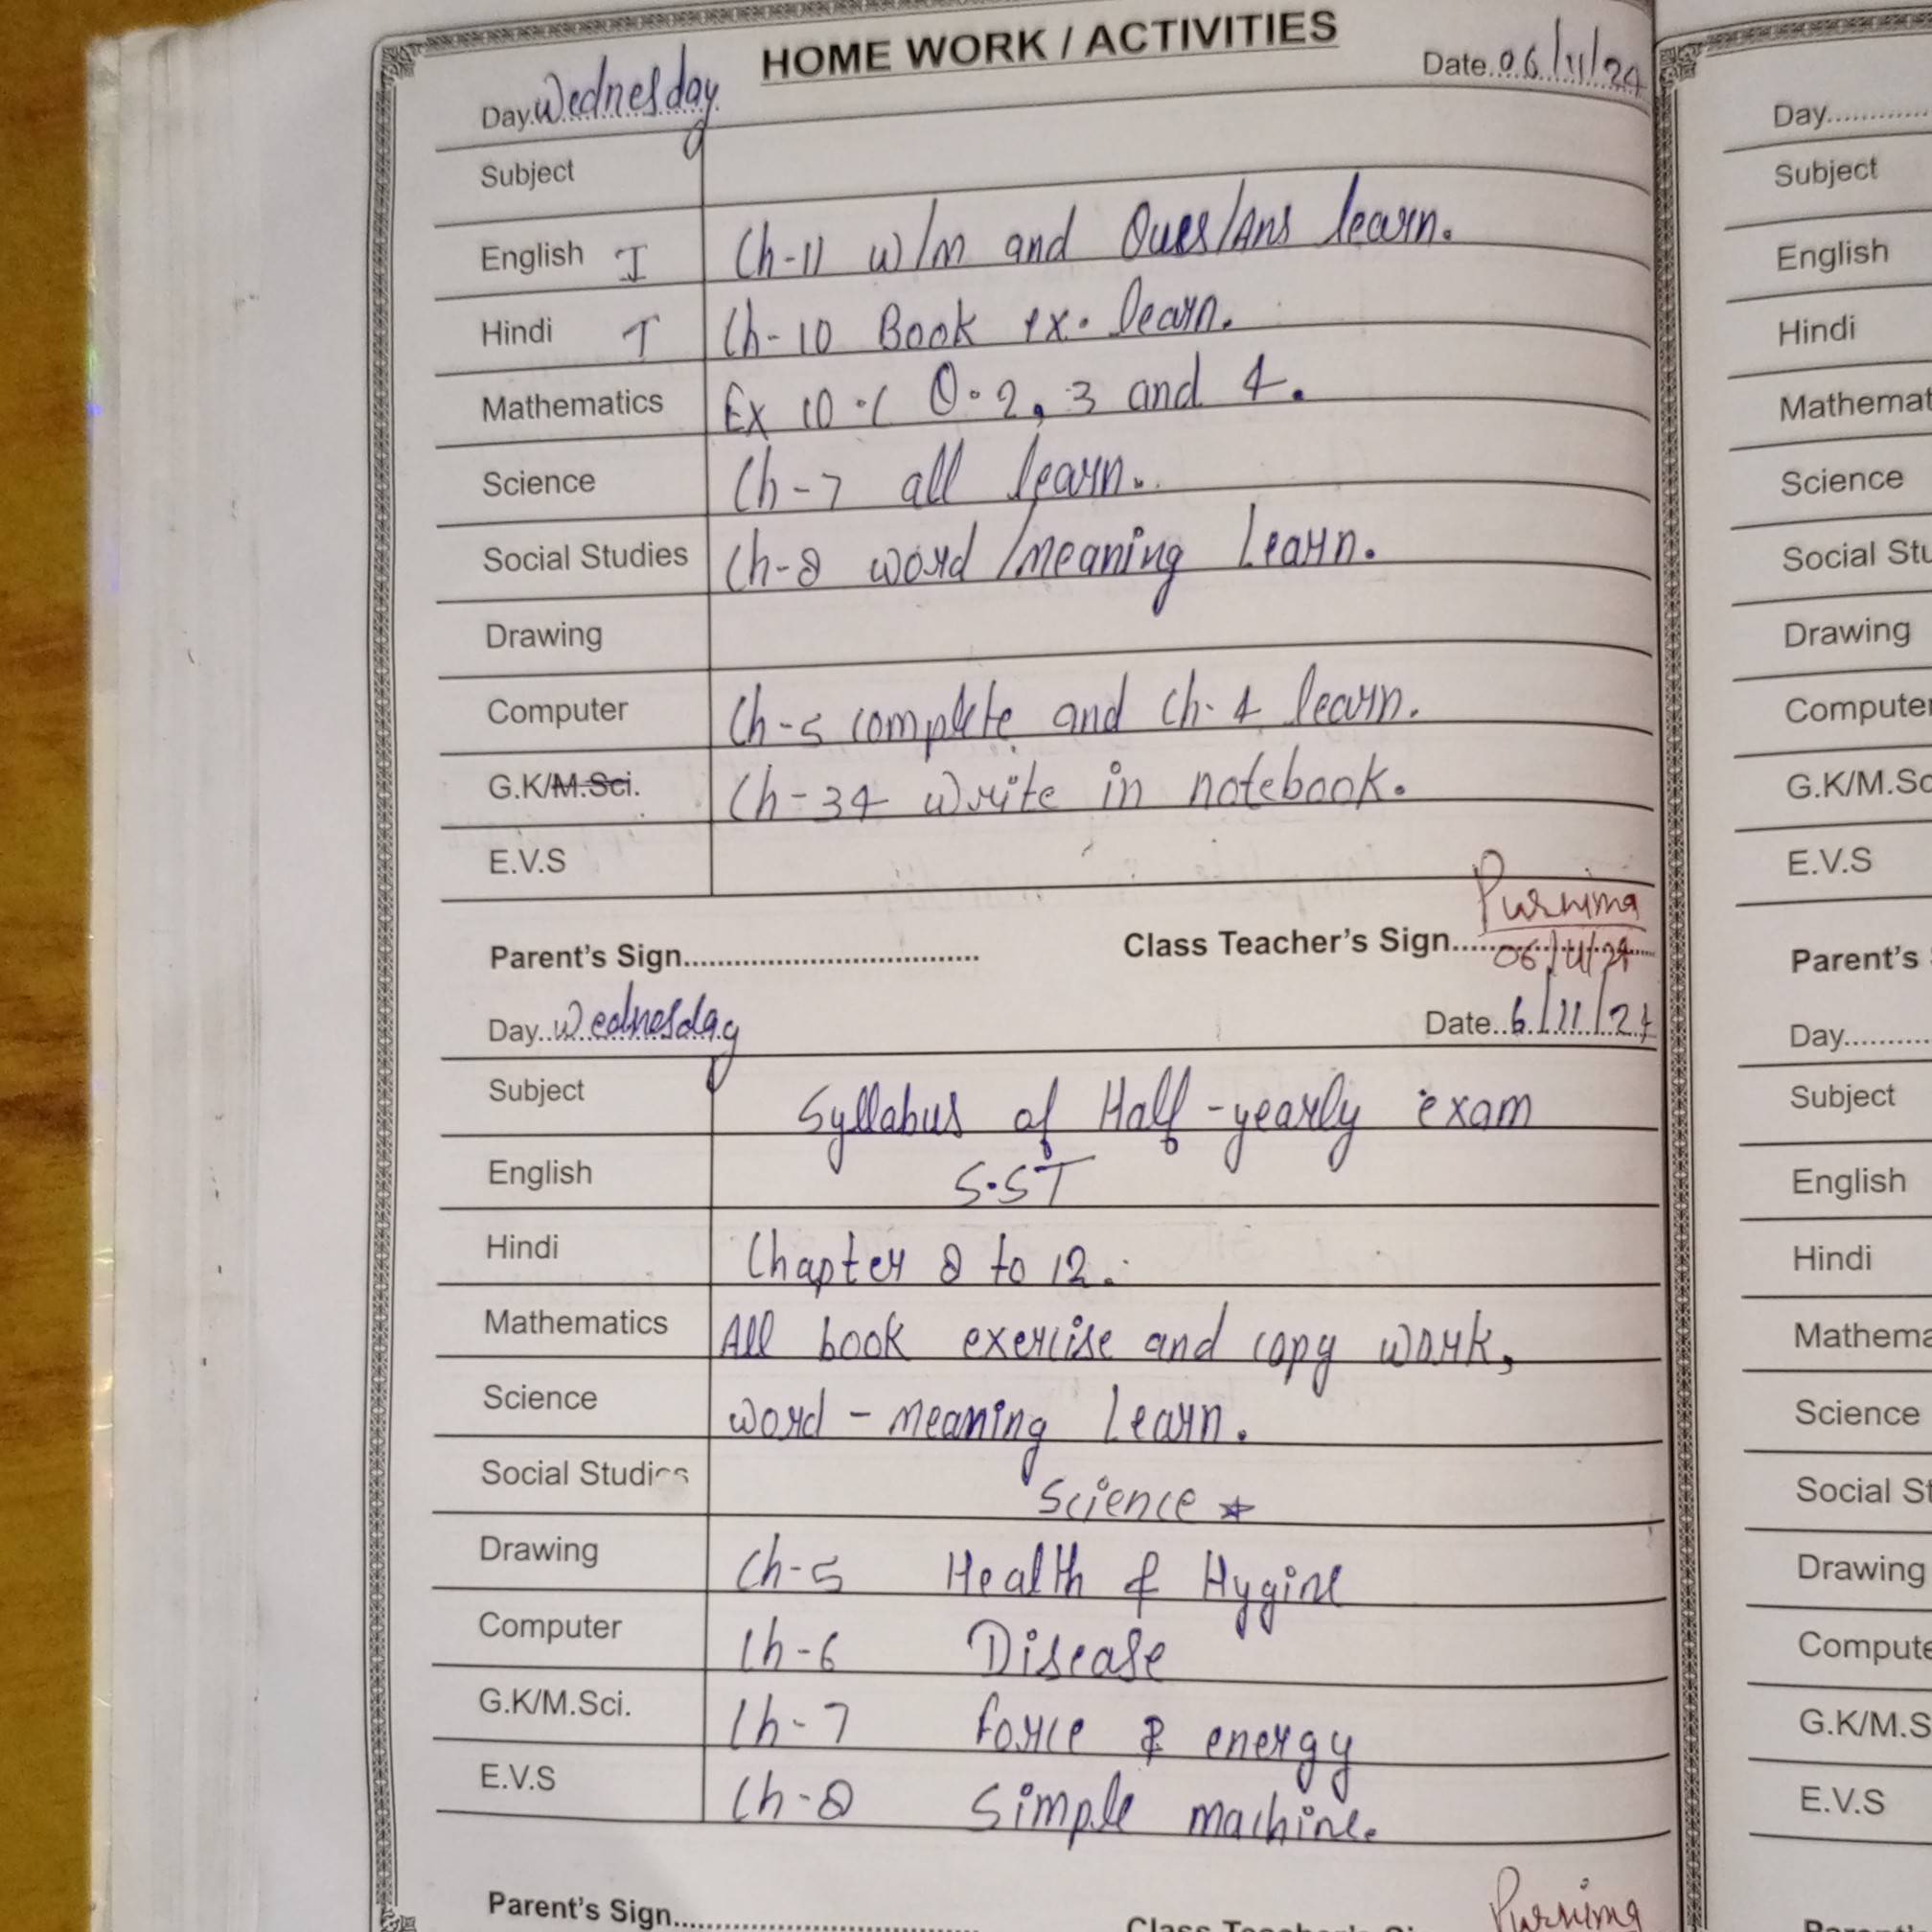 HOME WORK / ACTIVITIES
Day Wednesday Date 06/11/24
Subject
English I Ch-11 w/m and Ques/Ans learn.
Hindi I Ch-10 Book ex. learn.
Mathematics Ex 10.1 Q.2, 3 and 4.
Science Ch-7 all learn.
Social Studies Ch-8 word/meaning Learn.
Drawing
Computer Ch-5 complete and Ch-4 learn.
G.K/M.Sci. Ch-34 Write in notebook.
E.V.S
Parent's Sign Class Teacher's Sign Purnima
06/11/24
Day Wednesday Date 6/11/24
Subject Syllabus of Half-yearly exam
English S.ST
Hindi Chapter 8 to 12.
Mathematics All book exercise and copy work,
Science word-meaning Learn.
Social Studies Science
Drawing Ch-5 Health & Hygine
Computer Ch-6 Disease
G.K/M.Sci. Ch-7 force & energy
E.V.S Ch-8 Simple machine.
Parent's Sign Class Purnima
Day
Subject
English
Hindi
Mathemat
Science
Social Stu
Drawing
Computer
G.K/M.Sc
E.V.S
Parent's
Day
Subject
English
Hindi
Mathema
Science
Social St
Drawing
Compute
G.K/M.S
E.V.S